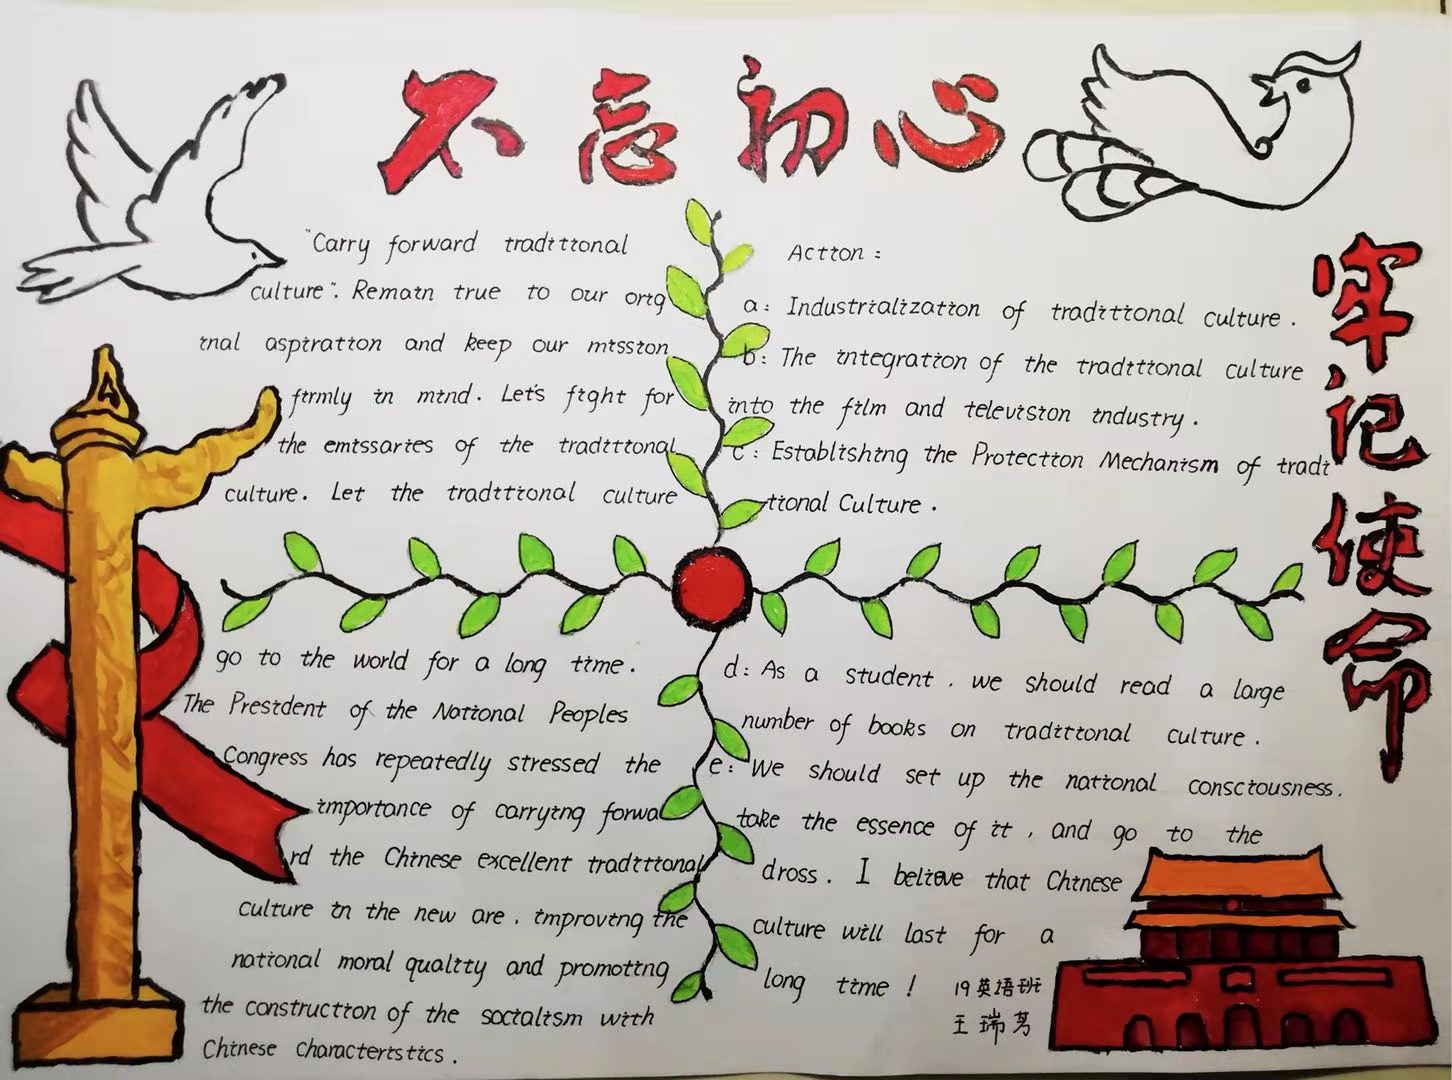 不忘初心
牢记使命
"Carry forward traditional
culture". Remain true to our orig
inal aspiration and keep our mission
firmly in mind. Let's fight for
the emissaries of the traditional
culture. Let the traditional culture
go to the world for a long time.
The President of the National Peoples
Congress has repeatedly stressed the
importance of carrying forwa
rd the Chinese excellent traditional
culture in the new are, improving the
national moral quality and promoting
the construction of the socialism with
Chinese characteristics.
Action:
a: Industrialization of traditional culture.
b: The integration of the traditional culture
into the film and television industry.
c: Establishing the Protection Mechanism of tradi
tional Culture.
d: As a student, we should read a large
number of books on traditional culture.
e: We should set up the national consciousness.
take the essence of it, and go to the
dross. I believe that Chinese
culture will last for a
long time!
19英语班
王瑞